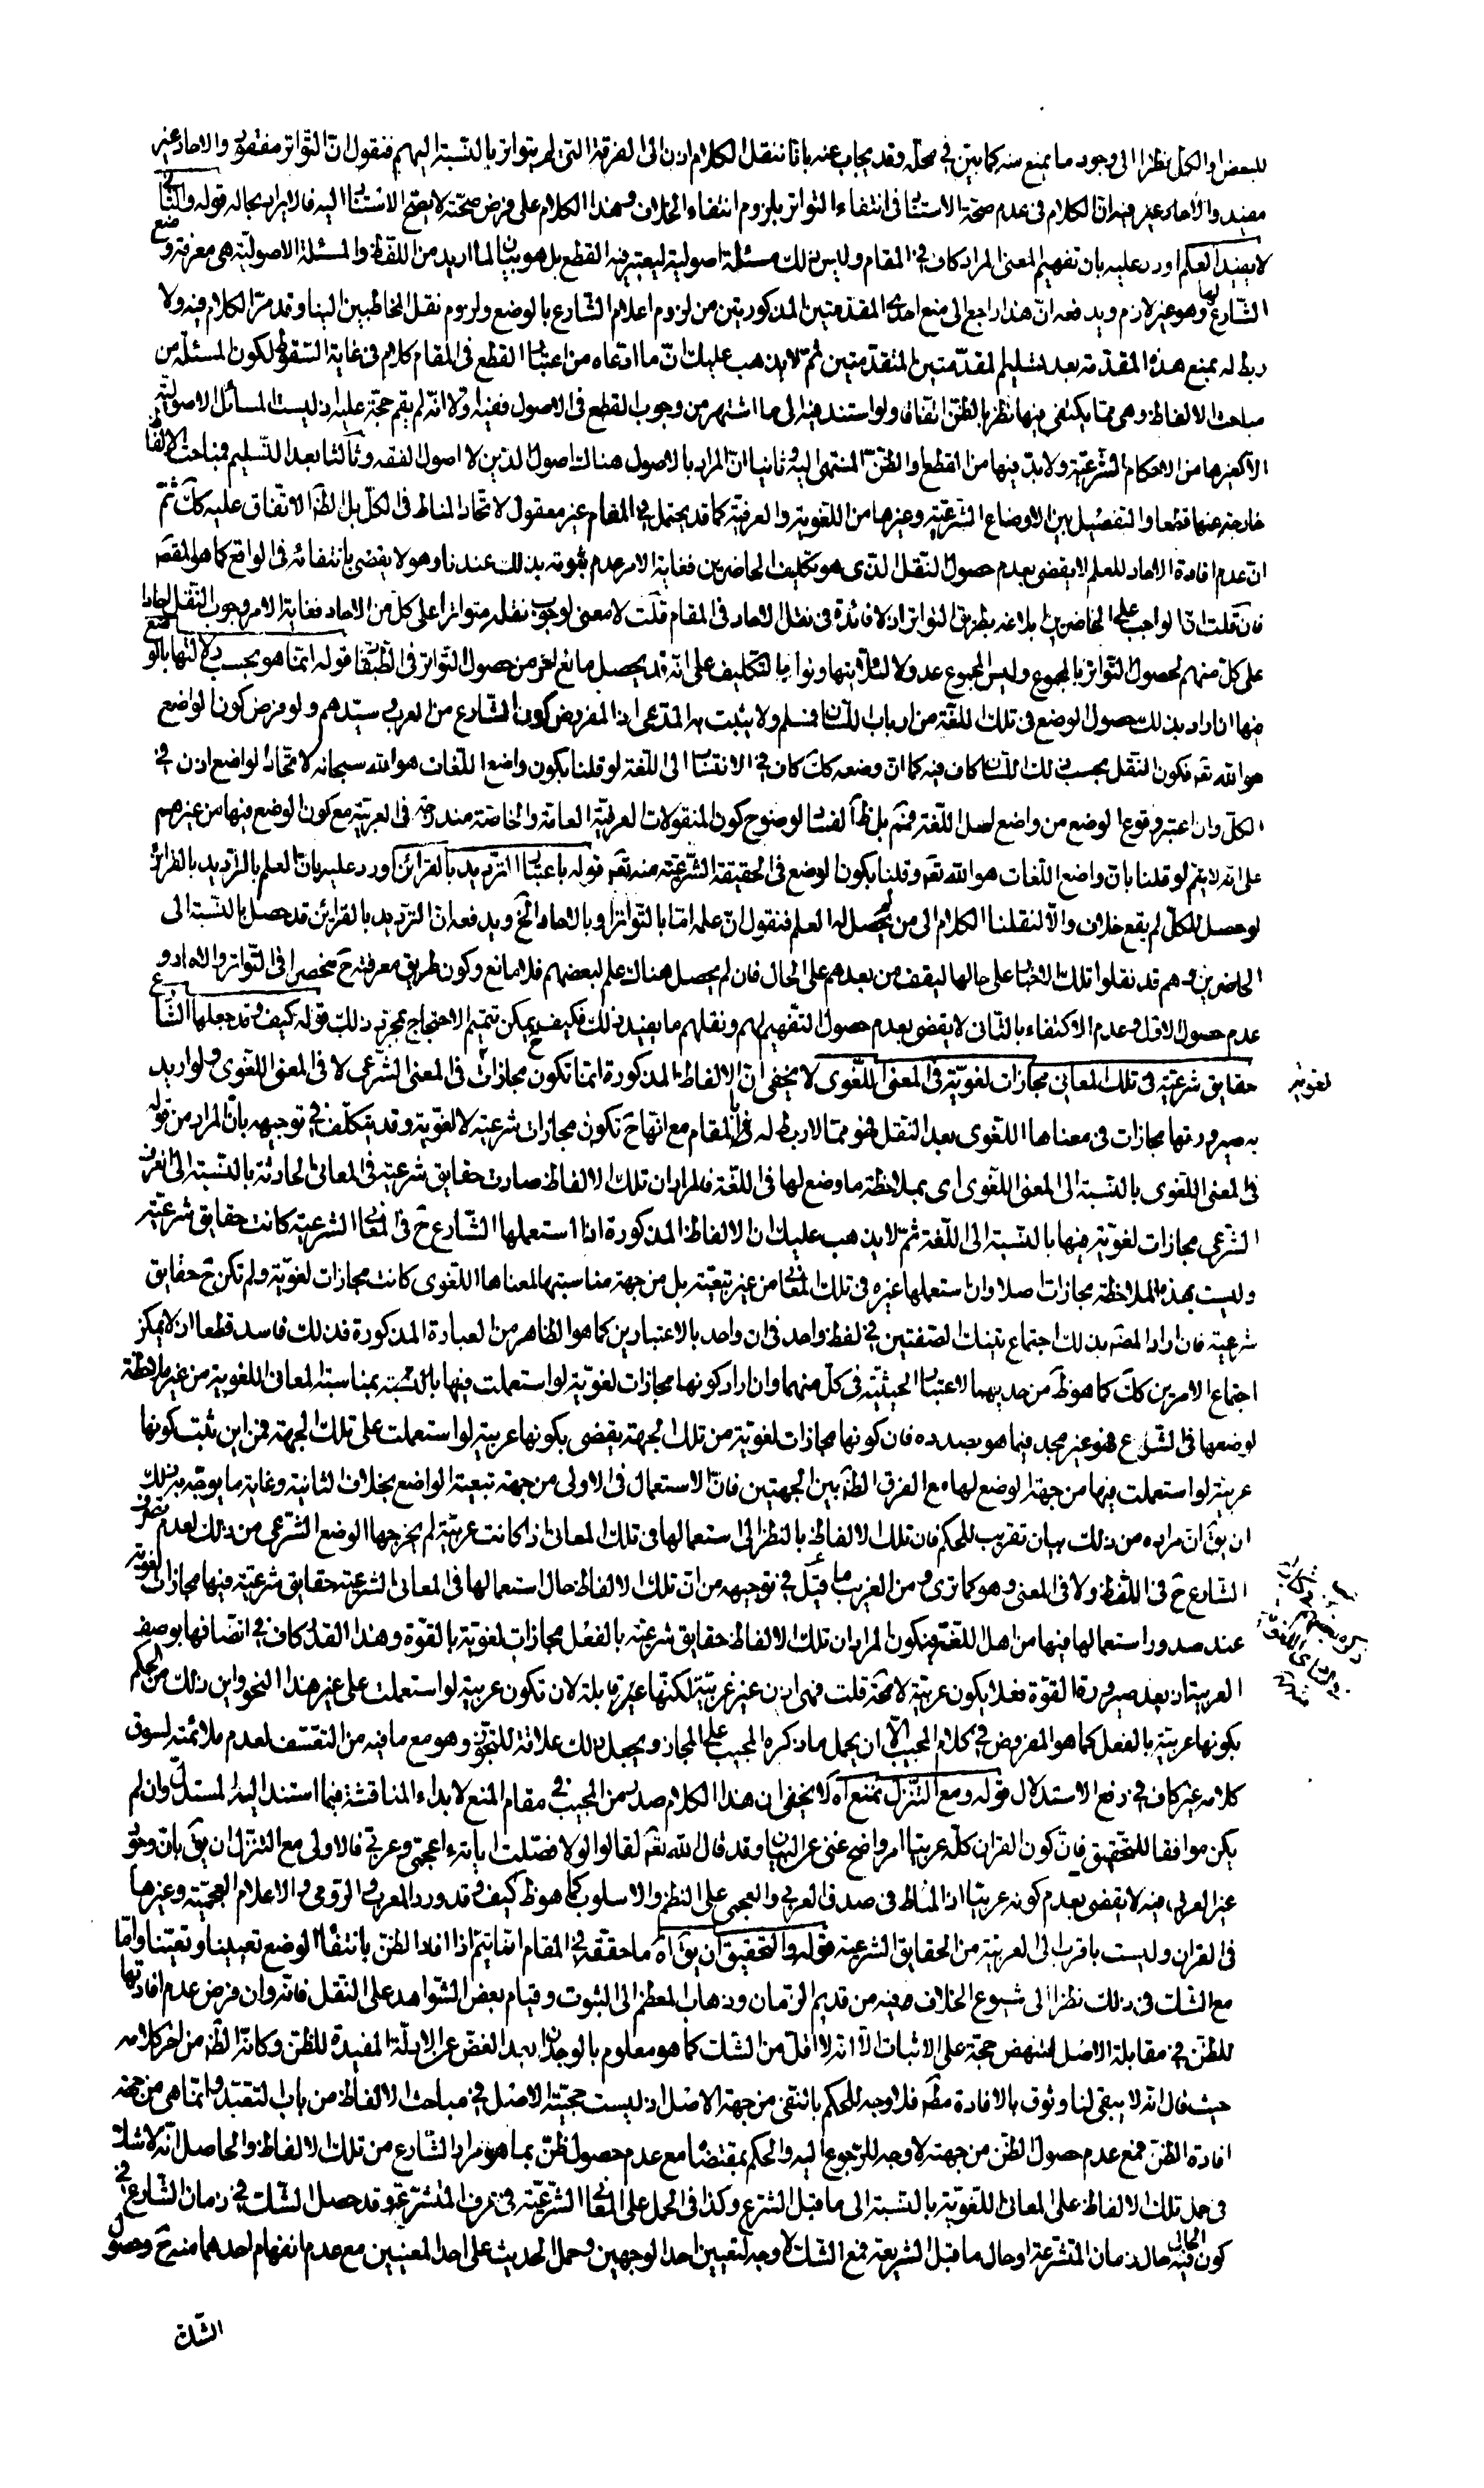 للبعض او الكل نظرا الى وجود ما يمنع منه كما بين في محله وقد يجاب عنه بانا ننقل الكلام اذن الى الفرقة التى لم يتواتر بالنسبة اليهم فنقول ان التواتر مفقود والاحاد غير
مفيد والاحاد غير فيه ان الكلام فى عدم صحة الاستناد فى انتفاء التواتر بلزوم انتفاء الخلاف وهذا الكلام على فرض صحته لا يصحح الاستناد اليه فالايراد بحاله قوله والثانى
لا يفيد العلم اورد عليه بان تفهيم المعنى المراد كاف في المقام وليس ذلك مسئلة اصولية ليعتبر فيه القطع بل هو بيان لما اريد من اللفظ والمسئلة الاصولية هى معرفة وضع
الشارع لها وهو غير لازم ويدفعه ان هذا راجع الى منع احدى المقدمتين المذكورتين من لزوم اعلام الشارع بالوضع ولزوم نقل المخاطبين الينا وقد مر الكلام فيه ولا
ربط له بمنع هذه المقدمة بعد تسليم المقدمتين المتقدمتين ثم لا يذهب عليك ان ما ادعاه من اعتبار القطع فى المقام كلام فى غاية السقوط لكون المسئلة من
مباحث الالفاظ وهى مما يكتفى فيها بالظن اتفاقا ولو استند فيه الى ما اشتهر من وجوب القطع فى الاصول ففيه اولا انه لم يقم حجة عليه اذ ليست المسائل الاصولية
الا كغيرها من الاحكام الشرعية ولا بد فيها من القطع او الظن المنتهى اليه وثانيا ان المراد بالاصول هناك اصول الدين لا اصول الفقه وثالثا بعد التسليم فمباحث الالفاظ
خارجة عنها قطعا والتفصيل بين الاوضاع الشرعية وغيرها من اللغوية والعرفية كما قد يحتمل في المقام غير معقول لاتحاد المناط فى الكل بل الظ الاتفاق عليه كك ثم
ان عدم افادة الاحاد للعلم لا يقضى بعدم حصول النقل الذى هو تكليف الحاضرين فغاية الامر عدم ثبوته بذلك عندنا وهو لا يقضى بانتفائه فى الواقع كما هو المقصود
فان قلت ان الواجب على الحاضرين ابلاغه بطريق التواتر اذ لا فائدة فى نقل الاحاد فى المقام قلت لا معنى لوجوب نقله متواترا على كل من الاحاد فغاية الامر وجوب النقل احادا
على كل منهم لحصول التواتر بالمجموع وليس المجموع عدولا لئلا يتهاونوا بالتكليف على انه قد يحصل مانع اخر من حصول التواتر فى الطبقات قوله انما هو بحسب دلالتها بالوضع
فيها ان اراد بذلك حصول الوضع فى تلك اللغة من ارباب اللسان فمسلم ولا يثبت به المدعى اذ المفروض كون الشارع من العرب وسيدهم ولو فرض كون الواضع
هو الله تعه فكون النقل بحسب ذلك اللسان كاف فيه كما ان وضعه كك كاف في الانتساب الى اللغة لو قلنا بكون واضع اللغات هو الله سبحانه لاتحاد الواضع اذن في
الكل وان اعتبر وقوع الوضع من واضع اصل اللغة فمم بل ظ الفساد لوضوح كون المنقولات العرفية العامة والخاصة مندرجة فى العربية مع كون الوضع فيها من غيرهم
على انه لا يتم لو قلنا بان واضع اللغات هو الله تعه وقلنا بكون الوضع فى الحقيقة الشرعية منه تعه قوله باعتبار الترديد بالقرائن اورد عليه بان العلم بالترديد بالقرائن
لو حصل للكل لم يقع خلاف والا لنقلنا الكلام الى من لم يحصل له العلم فنقول ان علمه اما بالتواتر او بالاحاد الخ ويدفعه ان الترديد بالقراين قد حصل بالنسبة الى
الحاضرين وهم قد نقلوا تلك الاخبار على حالها ليقف من بعدهم على الحال فان لم يحصل هناك علم لبعضهم فلا مانع وكون طريق معرفته ح منحصرا فى التواتر والاحاد و
عدم حصول الاول وعدم الاكتفاء بالثانى لا يقضى بعدم حصول التفهيم لهم ونقلهم ما يفيد ذلك فكيف يمكن تتميم الاحتجاج بمجرد ذلك قوله كيف وقد جعلها الشارع
حقايق شرعية فى تلك المعانى مجازات لغوية فى المعنى اللغوى لا يخفى ان الالفاظ المذكورة انما تكون ح مجازات فى المعنى الشرعى لا فى المعنى اللغوى ولو اريد
لغوية
به صيرورتها مجازات فى معناها اللغوى بعد النقل فهو مما لا ربط له فى المقام مع انها ح تكون مجازات شرعية لا لغوية وقد يتكلف في توجيهه بان المراد من قوله
فى المعنى اللغوى بالنسبة الى المعنى اللغوى اى بملاحظة ما وضع لها فى اللغة فالمراد ان تلك الالفاظ صارت حقايق شرعية فى المعانى الحادثة بالنسبة الى العرف
الشرعى مجازات لغوية فيها بالنسبة الى اللغة ثم لا يذهب عليك ان الالفاظ المذكورة اذا استعملها الشارع ح فى المعانى الشرعية كانت حقايق شرعية
وليست بهذه الملاحظة مجازات اصلا وان استعملها غيره فى تلك المعانى من غير تبعيته بل من جهة مناسبتها لمعناها اللغوى كانت مجازات لغوية ولم تكن ح حقايق
شرعية فان اراد المص بذلك اجتماع تينك الصفتين في لفظ واحد فى ان واحد بالاعتبارين كما هو الظاهر من العبارة المذكورة فذلك فاسد قطعا اذ لا يمكن
اجتماع الامرين كك كما هو ظ من حديهما لاعتبار الحيثية فى كل منهما وان اراد كونها مجازات لغوية لو استعملت فيها بالنسبة بمناسبة المعانى اللغوية من غير ملاحظة
لوضعها فى الشرع فهو غير مجد فيما هو بصدده فان كونها مجازات لغوية من تلك الجهة يقضى بكونها عربية لو استعملت على تلك الجهة فمن اين ثبت كونها
عربية لو استعملت فيها من جهة الوضع لها مع الفرق الظ بين الجهتين فان الاستعمال فى الاولى من جهة تبعية الواضع بخلاف الثانية وغاية ما يوجه به ذلك
ان يق ان مراده من ذلك بيان تقريب للحكم فان تلك الالفاظ بالنظر الى استعمالها فى تلك المعانى اذا كانت عربية لم يخرجها الوضع الشرعى من ذلك لعدم تصرف
الشارع ح فى اللفظ ولا فى المعنى وهو كما ترى ومن الغريب ما قيل في توجيهه من ان تلك الالفاظ حال استعمالها فى المعانى الشرعية حقايق شرعية فيها مجازات لغوية
عند صدور استعمالها فيها من اهل اللغة فيكون المراد ان تلك الالفاظ حقايق شرعية بالفعل مجازات لغوية بالقوة وهذا القدر كاف في اتصافها بوصف
العربية اذ بعد صيرورة القوة فعلا يكون عربية لا محة قلت فهى اذن غير عربية لكنها قابلة لان تكون عربية لو استعملت على غير هذا النحو واين ذلك من الحكم
بكونها عربية بالفعل كما هو المفروض في كلام المجيب الا ان يحمل ما ذكره المجيب على المجاز ويجعل ذلك علاقة للتجوز وهو مع ما فيه من التعسف لعدم ملائمته لسوق
كلامه غير كاف في دفع الاستدلال قوله ومع التنزل نمنع اه لا يخفى ان هذا الكلام صدر من المجيب في مقام المنع لابداء المناقشة فيما استند اليه المستدل وان لم
يكن موافقا للتحقيق فان كون القران كله عربيا امر واضح غنى عن البيان وقد قال الله تعه لقالوا لولا فصلت اياته ءاعجمى وعربى فالاولى مع التنزل ان يق بان وجود
غير العربى فيه لا يقضى بعدم كونه عربيا اذ المناط فى صدق العربى والعجمى على النظم والاسلوب كما هو ظ كيف وقد ورد المعرب والرومى والاعلام العجمية وغيرها
فى القران وليست باقرب الى العربية من الحقايق الشرعية قوله والتحقيق ان يق اه ما حققه في المقام انما يتم اذا افاد الظن بانتفاء الوضع تعيينا وتعينا واما
مع الشك فى ذلك نظرا الى شيوع الخلاف فيه من قديم الزمان وذهاب المعظم الى الثبوت وقيام بعض الشواهد على النقل فانه وان فرض عدم افادتها
للظن في مقابلة الاصل لينهض حجة على الاثبات الا انه لا اقل من الشك كما هو معلوم بالوجدان بعد الغض عن الادلة المفيدة للظن وكانه الظ من اخر كلامه
حيث قال انه لا يبقى لنا وثوق بالافادة مطه فلا وجه للحكم بالنفى من جهة الاصل اذ ليست حجية الاصل في مباحث الالفاظ من باب التعبد وانما هى من جهة
افادة الظن فمع عدم حصول الظن من جهته لا وجه للرجوع اليه والحكم بمقتضاه مع عدم حصول ظن بما هو مراد الشارع من تلك الالفاظ والحاصل انه لا شك
فى حمل تلك الالفاظ على المعانى اللغوية بالنسبة الى ما قبل الشرع وكذا فى الحمل على المعانى الشرعية فى عرف المتشرعة وقد حصل الشك في زمان الشارع في
كون الحال فيه حال زمان المتشرعة او حال ما قبل الشريعة فمع الشك لا وجه لتعيين احد الوجهين وحمل الحديث على احد المعنيين مع عدم انفهام احدهما منه ح وحصول
الشك